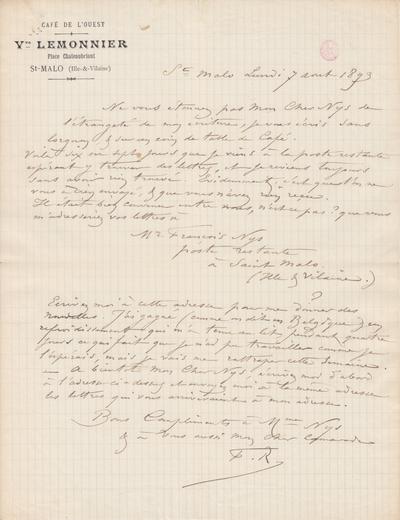 CAFÉ DE L'OUEST
Vve LEMONNIER
Place Chateaubriant
St-MALO (Ille-&-Vilaine)
St Malo Lundi 7 août 1893
Ne vous étonnez pas Mon Cher Nys de
l'étrangeté de mon écriture, je vous écris sans
lorgnon & sur un coin de table de Café.
Voilà six ou sept jours que je viens à la poste restante
espérant y trouver des lettres, et je reviens toujours
sans avoir rien trouvé. Evidemment c'est qu'on ne
vous a rien envoyé, & que vous n'avez rien reçu.
Il était bien convenu entre nous, n'est-ce pas? que vous
m'adresseriez vos lettres à
Mr François Nys
poste restante
à Saint Malo
(Ille & Vilaine.)
?
Ecrivez moi à cette adresse pour me donner des
nouvelles. J'ai gagné (comme on dit en Belgique) un
refroidissement qui m'a tenu au lit pendant quatre
jours ce qui fait que je n'ai pu travailler comme je
l'espérais, mais je vais me rattraper cette semaine.
— A bientôt Mon Cher Nys! écrivez moi d'abord
à l'adresse ci-dessus, et envoyez moi à la même adresse
les lettres qui vous arriveraient à mon adresse.
Bons Compliments à Mme Nys
& à vous aussi mon cher Camarade
F. R.